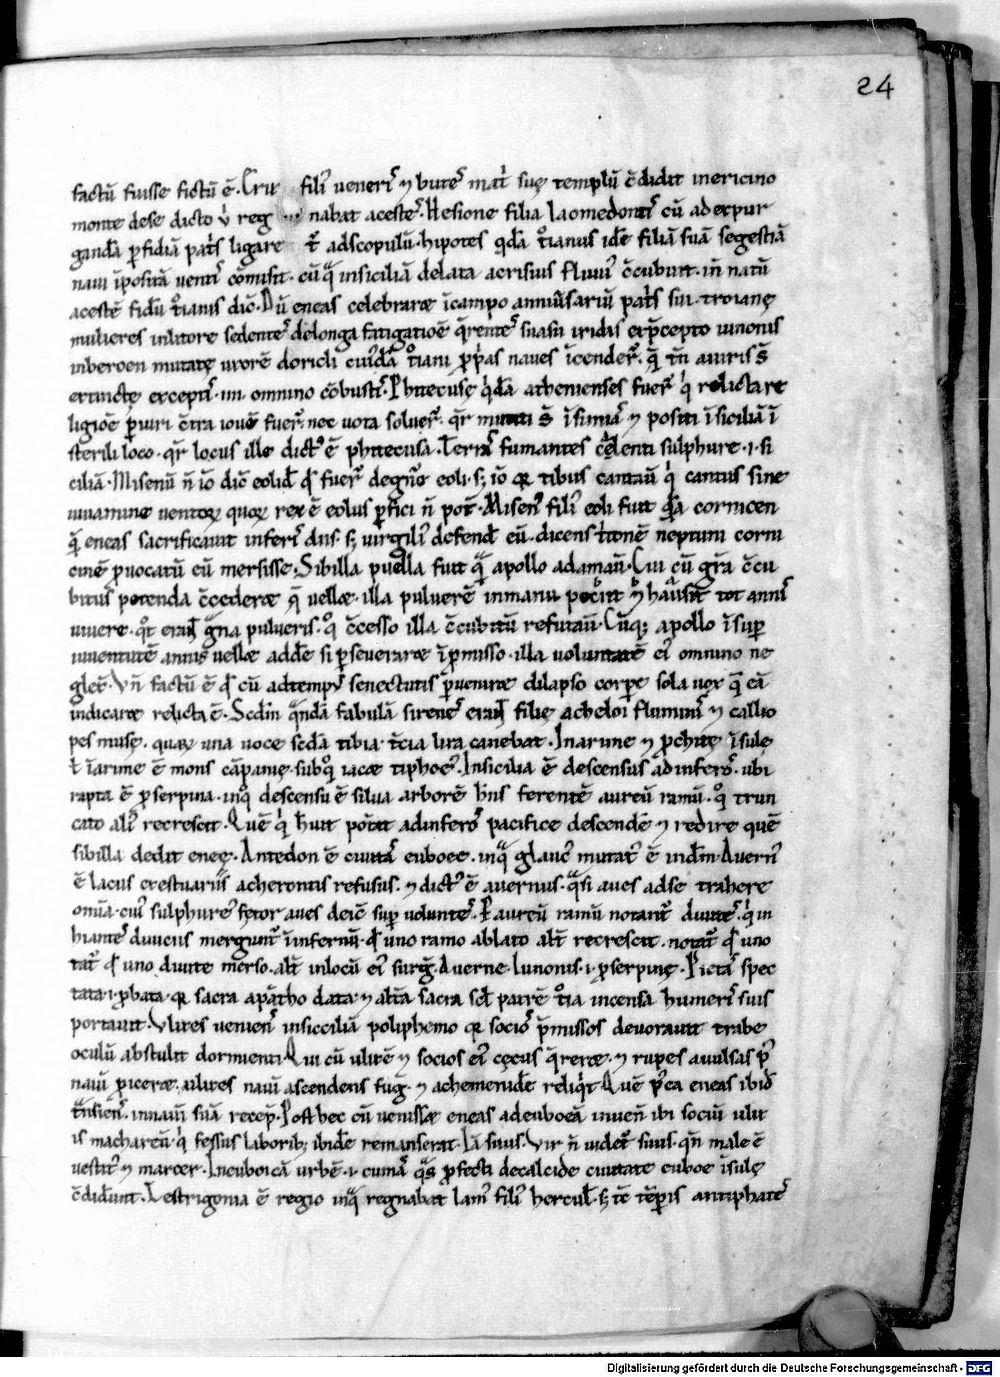 24
factū fuisse fictū ē. Erix filı᷒ venerı᷒ ⁊ butē mat̄ı suę templū c̄didit inericino
monte dese dicto reg nabat aceste. Hesione filia laomedontı᷒ cū adexpur
gandā p̄fidiā pat̄s ligare t̄ adscopulū. hipotes qdā t̄ianus idē filiā suā segestiā
naui īpositā ventı᷒ cōmisit. cū insiciliā delata acrisius fluuı᷒ c̄cubuit. natū
acestē t̄ianis dic̄. Dū eneas celebraret īcampo anniūsariū pat̄s sui. troianę
mulieres inlitore sedentes delonga fatigatiōe q̄rentes suasu iridis exp̄cepto iunonis
inberoen mutatę uxorē doricli cuı᷒dā t̄iani p̄p̄as naues īcender̄.
extinctę exceptı᷒ .iiii. omnino cōbustı᷒. Phitecusę q̄dā athenienses fuer̄ q̄ı relicta re
ligiōe c̄tra iouē fuer̄. nec uota soluer̄. qr̄ mutati s̄ īsimiā ⁊ positi īsiciliā ī
sterili loco. qr̄ locus ille dict᷒ ē phitecusa. Terrā fumantes sulphure .i. si
ciliā. Misenū n̄ iō dic̄ eolid̄ qd̄ fuer̄ degn̄e eoli. s; iō qr tibus cantaū qı cantus sine
uiuamine ventoꝝ quoꝝ rex ē eolus p̄fici n̄ pot̄. Misen᷒ filı᷒ eoli fuit cornicen
eneas sacrificauit inferı᷒ d̄ns. s; virgilı᷒ defend̄ eū. dicens t̄tonē neptuni corni
cinē p̄uocatū eū mersisse. Sibilla puella fuit apollo adamaū. Cui cū gr̄a c̄cu
bitus potenda c̄cederet q̄ vellet. illa pulverē inmanu tot annı᷒
uiuere. qt̄ erant gna pulveris. c̄cesso illa c̄cubitū refutaū. Cūq; apollo īsup̄
iuuentutē annis vellet adde si p̄severaret īp̄misso. illa voluntatē eı᷒ omnino ne
glex̄. Vn̄ factū ē qd̄ cū adtemp᷒ senectutis p̄veniret dilapso corpe sola vox eā
indicaret relicta ē. Scd̄m q̄ndā fabulā sirenes erant filię acheloi fluminı᷒ ⁊ callio
pes musę. quaꝝ una voce scd̄a tibia. t̄cia lira canebat. Inarime ⁊ p̄chitę īsulę
īarime ē mons cāpanię. subq iacet tiphoe᷒. Insicilia ē descensus adinferos. ubi
rapta ē p̄serpina. inq descensu ē silua arborē h̄ns ferentē aureū ramū. q trun
cato alı᷒ recrescit. Quē qı h̄uit potat adinferos pacifice descendē ⁊ redire quē
sibilla dedit enee. Antedon ē ciuitas euboee. inqa glauc᷒ mutat᷒ ē indm. Avern᷒
ē lacus exestuariis acherontis refusus. ⁊ dict᷒ ē auernus. qasi aues adse trahere
omīa. cuı᷒ sulphure᷒ fętor aues deic̄ sup volantes. P aureū ramū notant᷒ diuites. qı in
hiantes diuiciis mergunt᷒ īinfernū. qd̄ uno ramo ablato alt̄ recrescit. notat᷒ qd̄ uno
tat᷒ qd̄ uno diuite merso. alt̄ inlocū eı᷒ surḡ. Averne Iunonis .i. p̄serpinę. Pictas spec
tata .i. p̄bata. qr sacra apatho data. ⁊ alt̄a sacra patrē t̄ia incensa humerı᷒ suis
portauit. Vlixes veniens insiciliā poliphemo qr socios p̄missos devorauit trabe
oculū abstulit dormienti. Qui cū ulixē ⁊ socios eı᷒ cęcus q̄reret. ⁊ rupes auulsas p᷒
nauī piceret. ulixes nauī ascendens fuḡ. ⁊ achemenidē reliqt. Quē p᷒ca eneas ibid
t̄nsiens. innauī suā recep̄. Post hec cū venisset eneas adeuboeā inuen̄ ibi sociū ulix
is machareū. qı fessus laborib; ibidē remanserat. Iā suus. vir n̄ videt᷒ suus. qn male ē
vestit᷒ ⁊ marcet. Ineuboicā urbē .i. cumā qas p̄fecti decalcide ciuitate euboe īsulę
c̄diderunt. Lestrigonia ē regio inqa regnabat lam᷒ filı᷒ hercul̄. s; tē tēporis antiphates
Digitalisierung gefördert durch die Deutsche Forschungsgemeinschaft - DFG